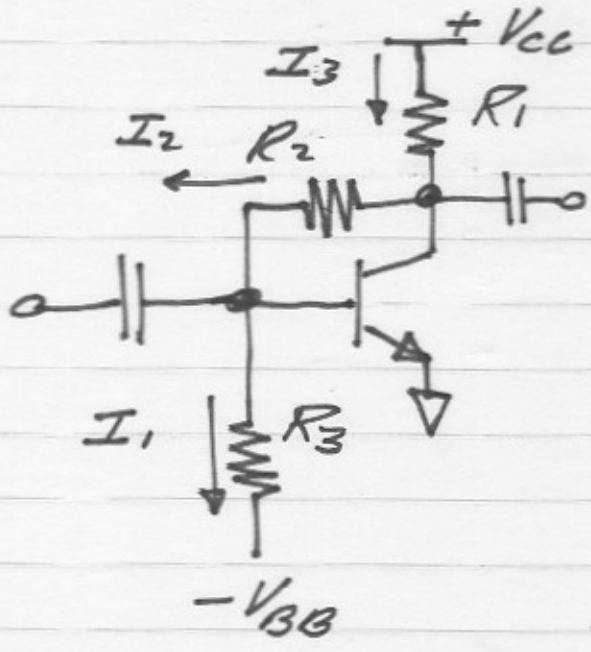 + VCC
I3
R1
I2
R2
I1
R3
-VBB